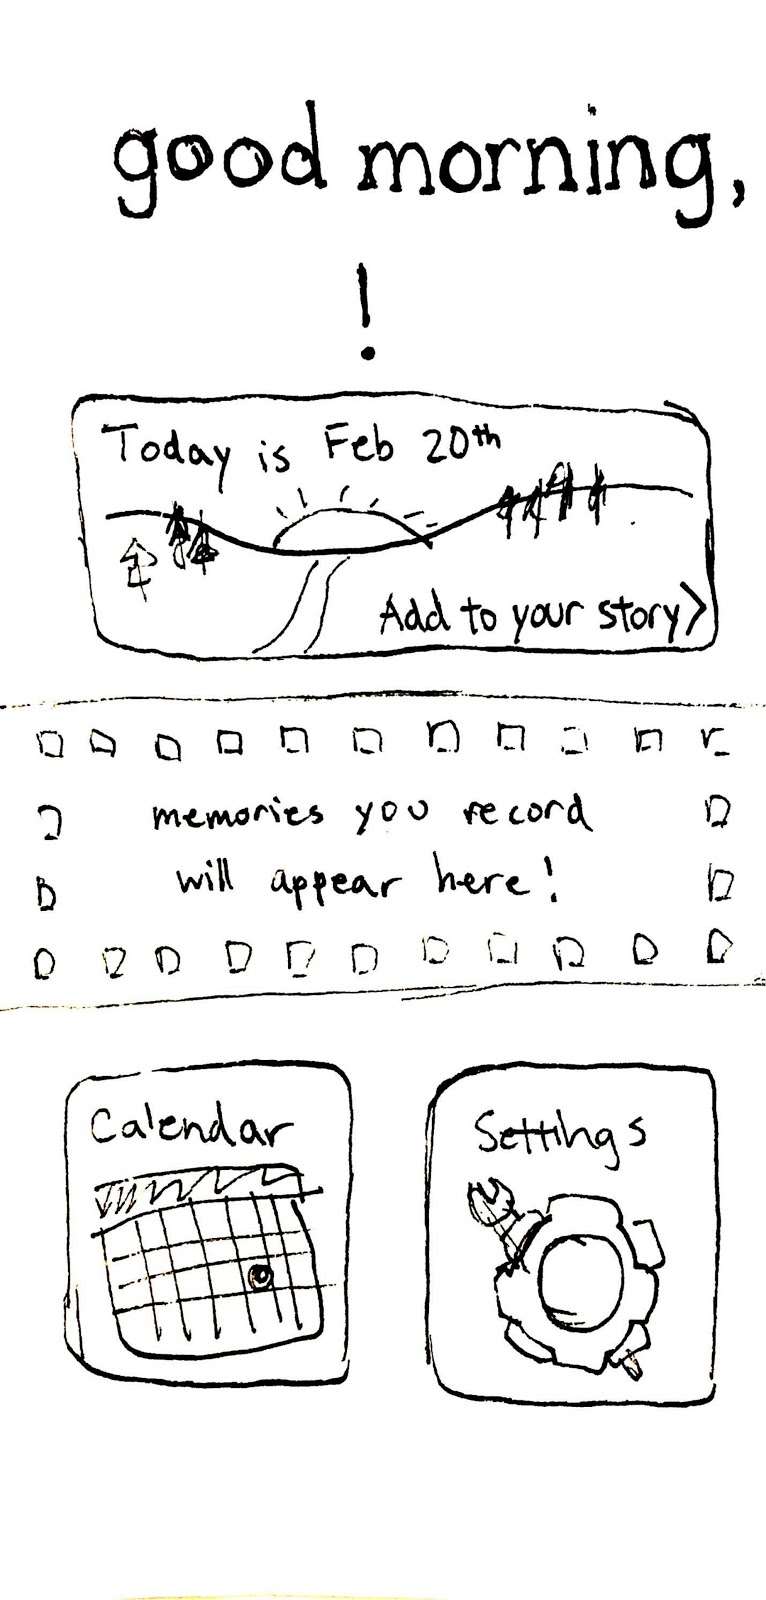 good morning,
!
Today is Feb 20th
Add to your story>
memories you record
will appear here!
Calendar
Settings